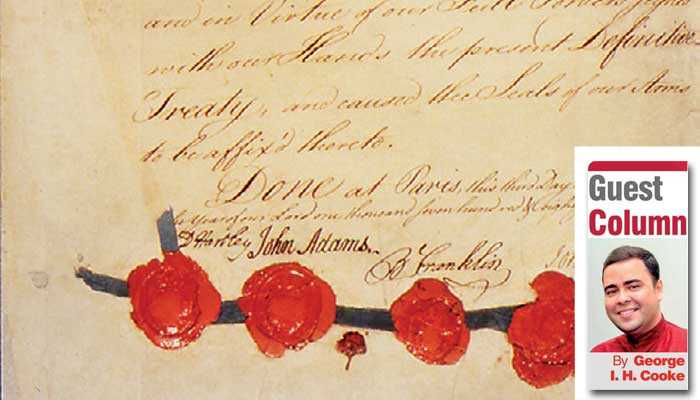 and in Virtue of our Full Powers
with our Hands the present Definitive
Treaty, and caused the Seals of our Arms
to be affix'd thereto.
Done at Paris, this third Day
Year of our Lord one thousand seven hundred & Eighty
D Hartley John Adams. B Franklin
Guest
Column
By George
I. H. Cooke